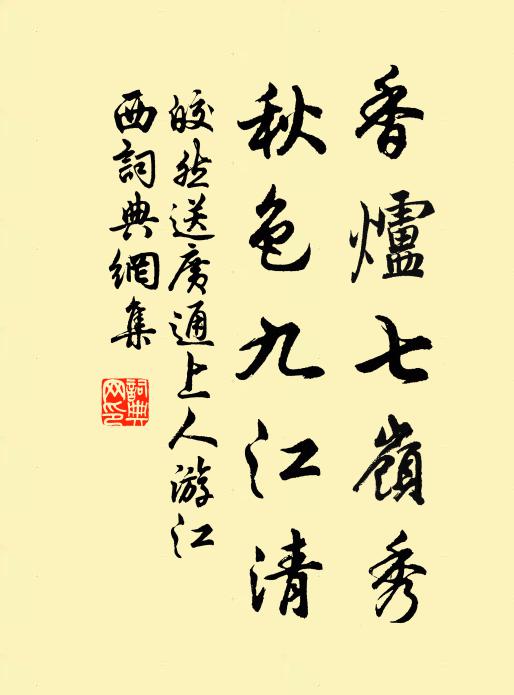 香爐七嶺秀
秋色九江清
皎然送廣通上人游江
西詞典網集
詞典
网印